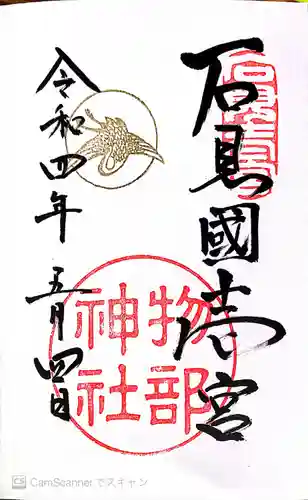 石見國一宮
物部神社
令和四年
五月四日
CamScanner でスキャン